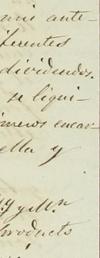 ante-
iferentes
dividendos.
se liqui-
imeros encar-
ella y
y
Products